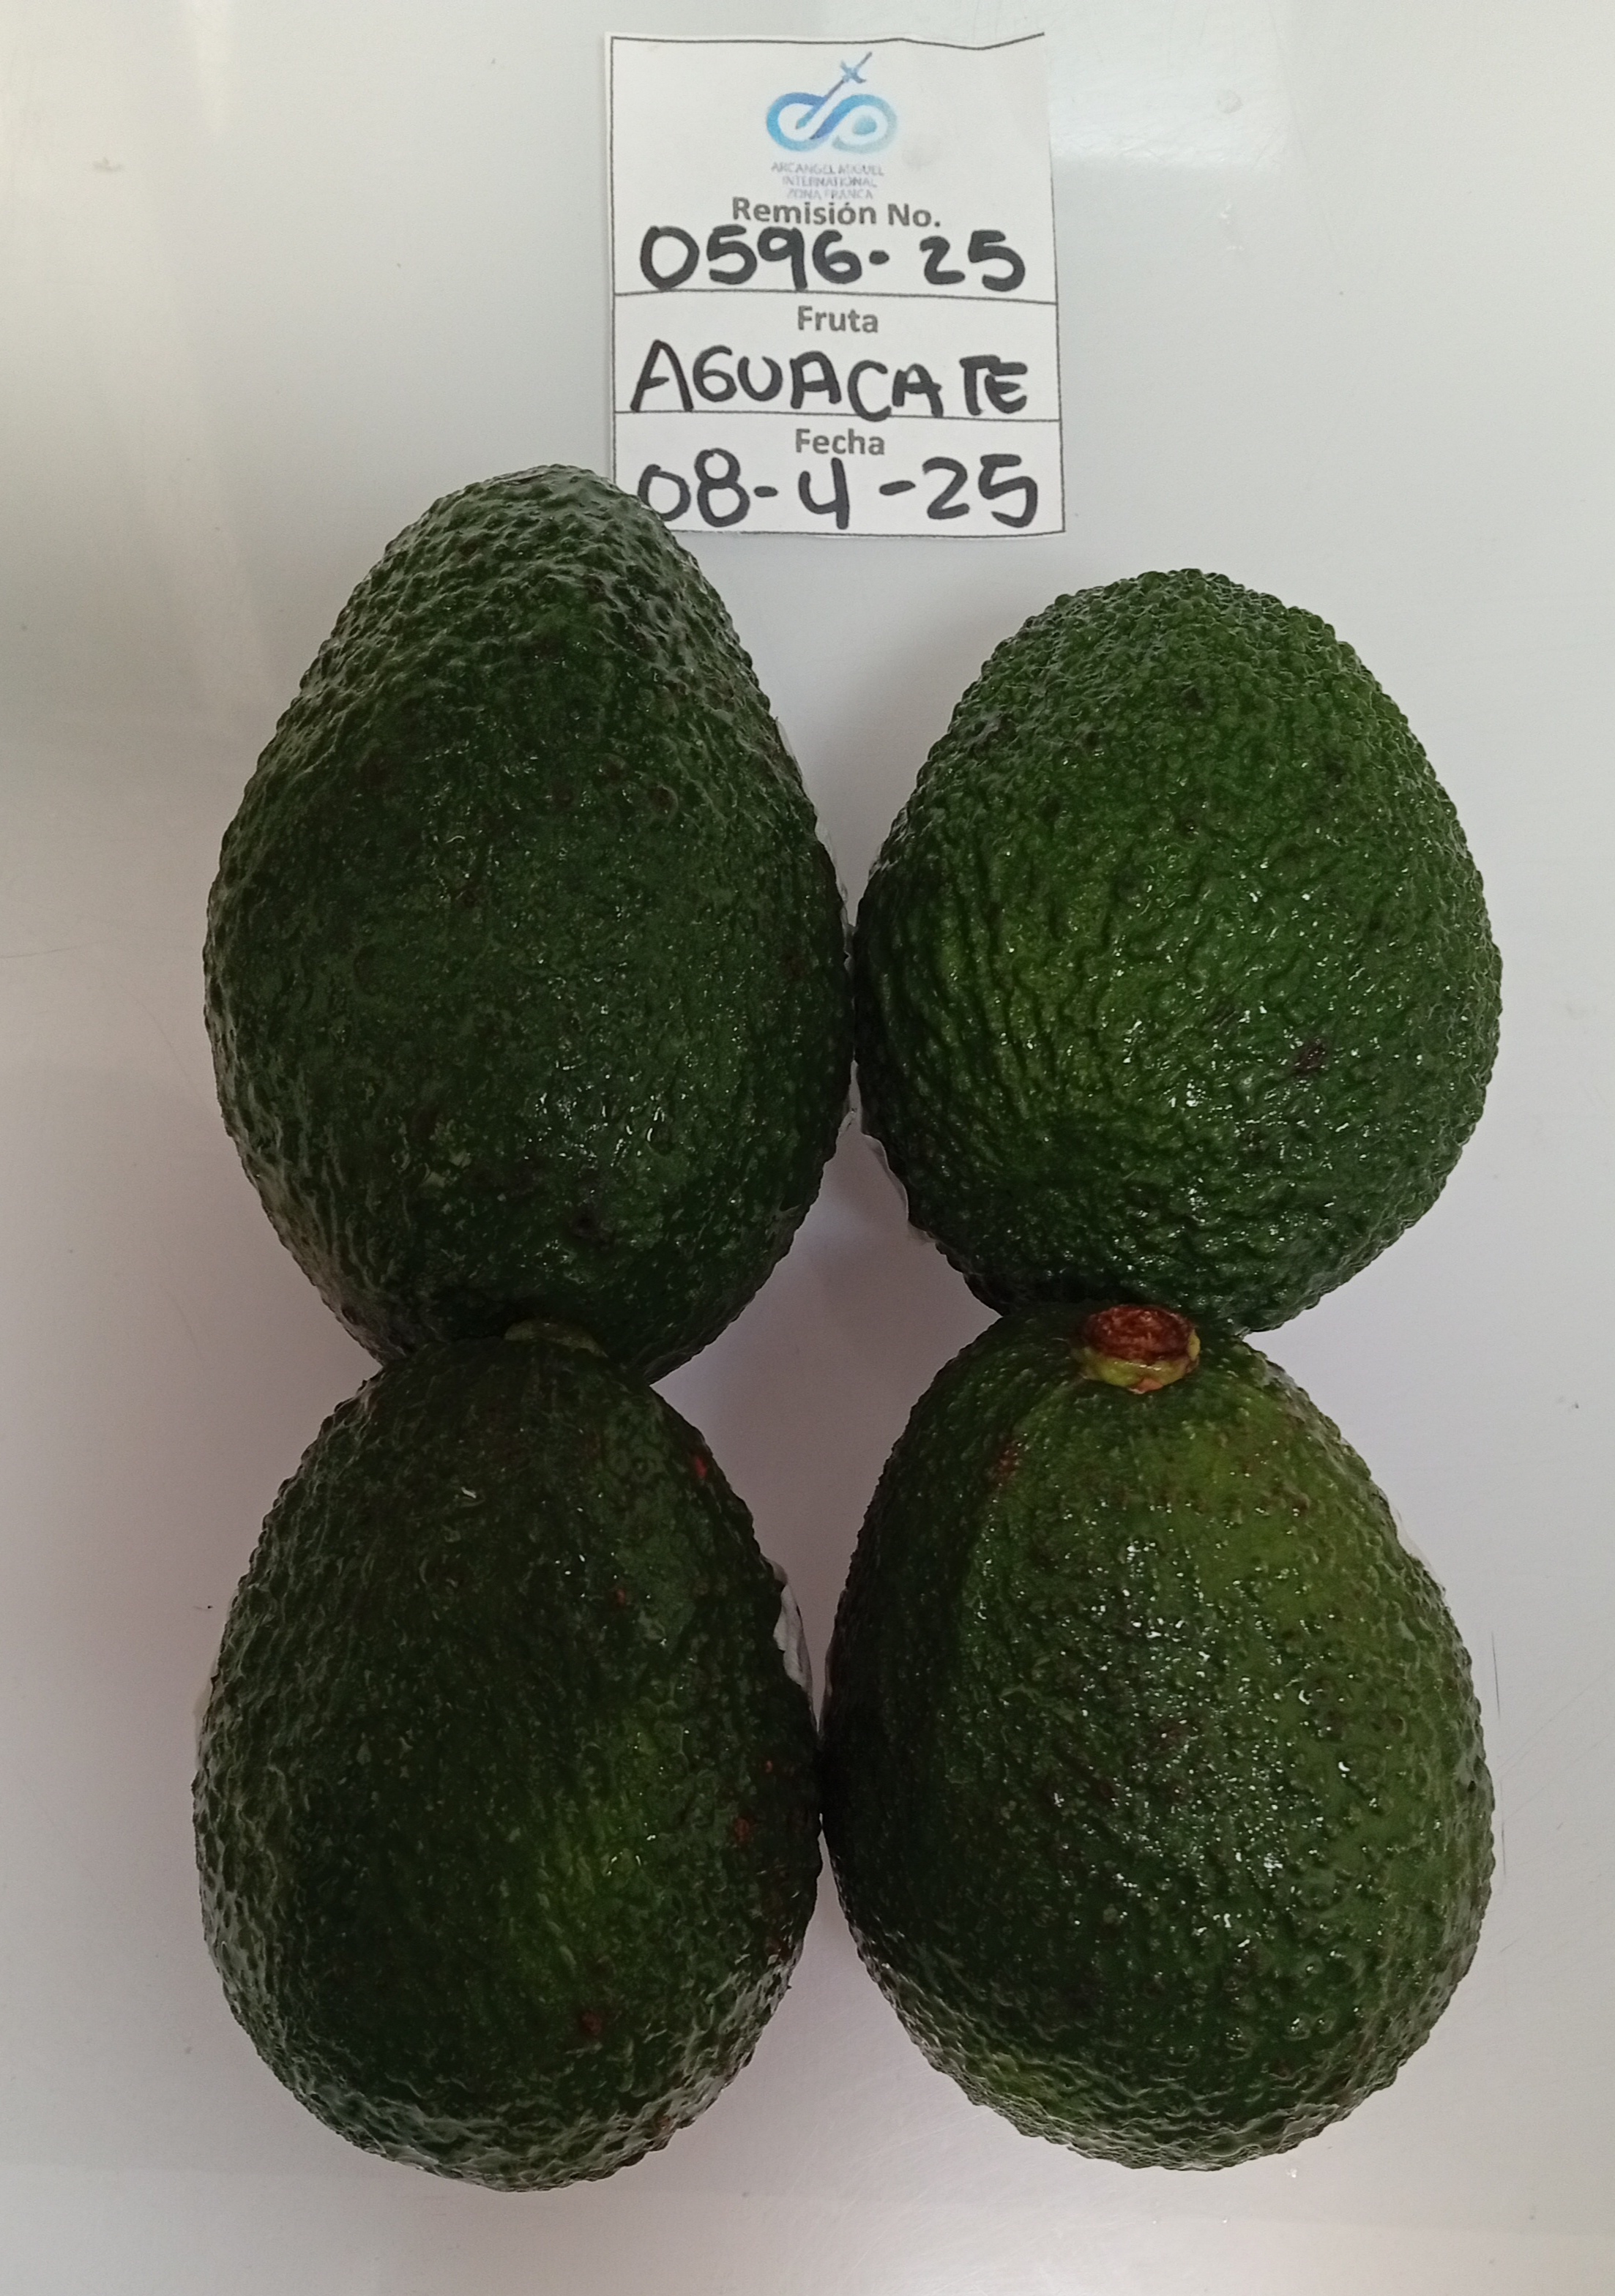 ARCANGEL MIGUEL
INTERNATIONAL
ZONA FRANCA
Remisión No.
0596-25
Fruta
AGUACATE
Fecha
08-4-25